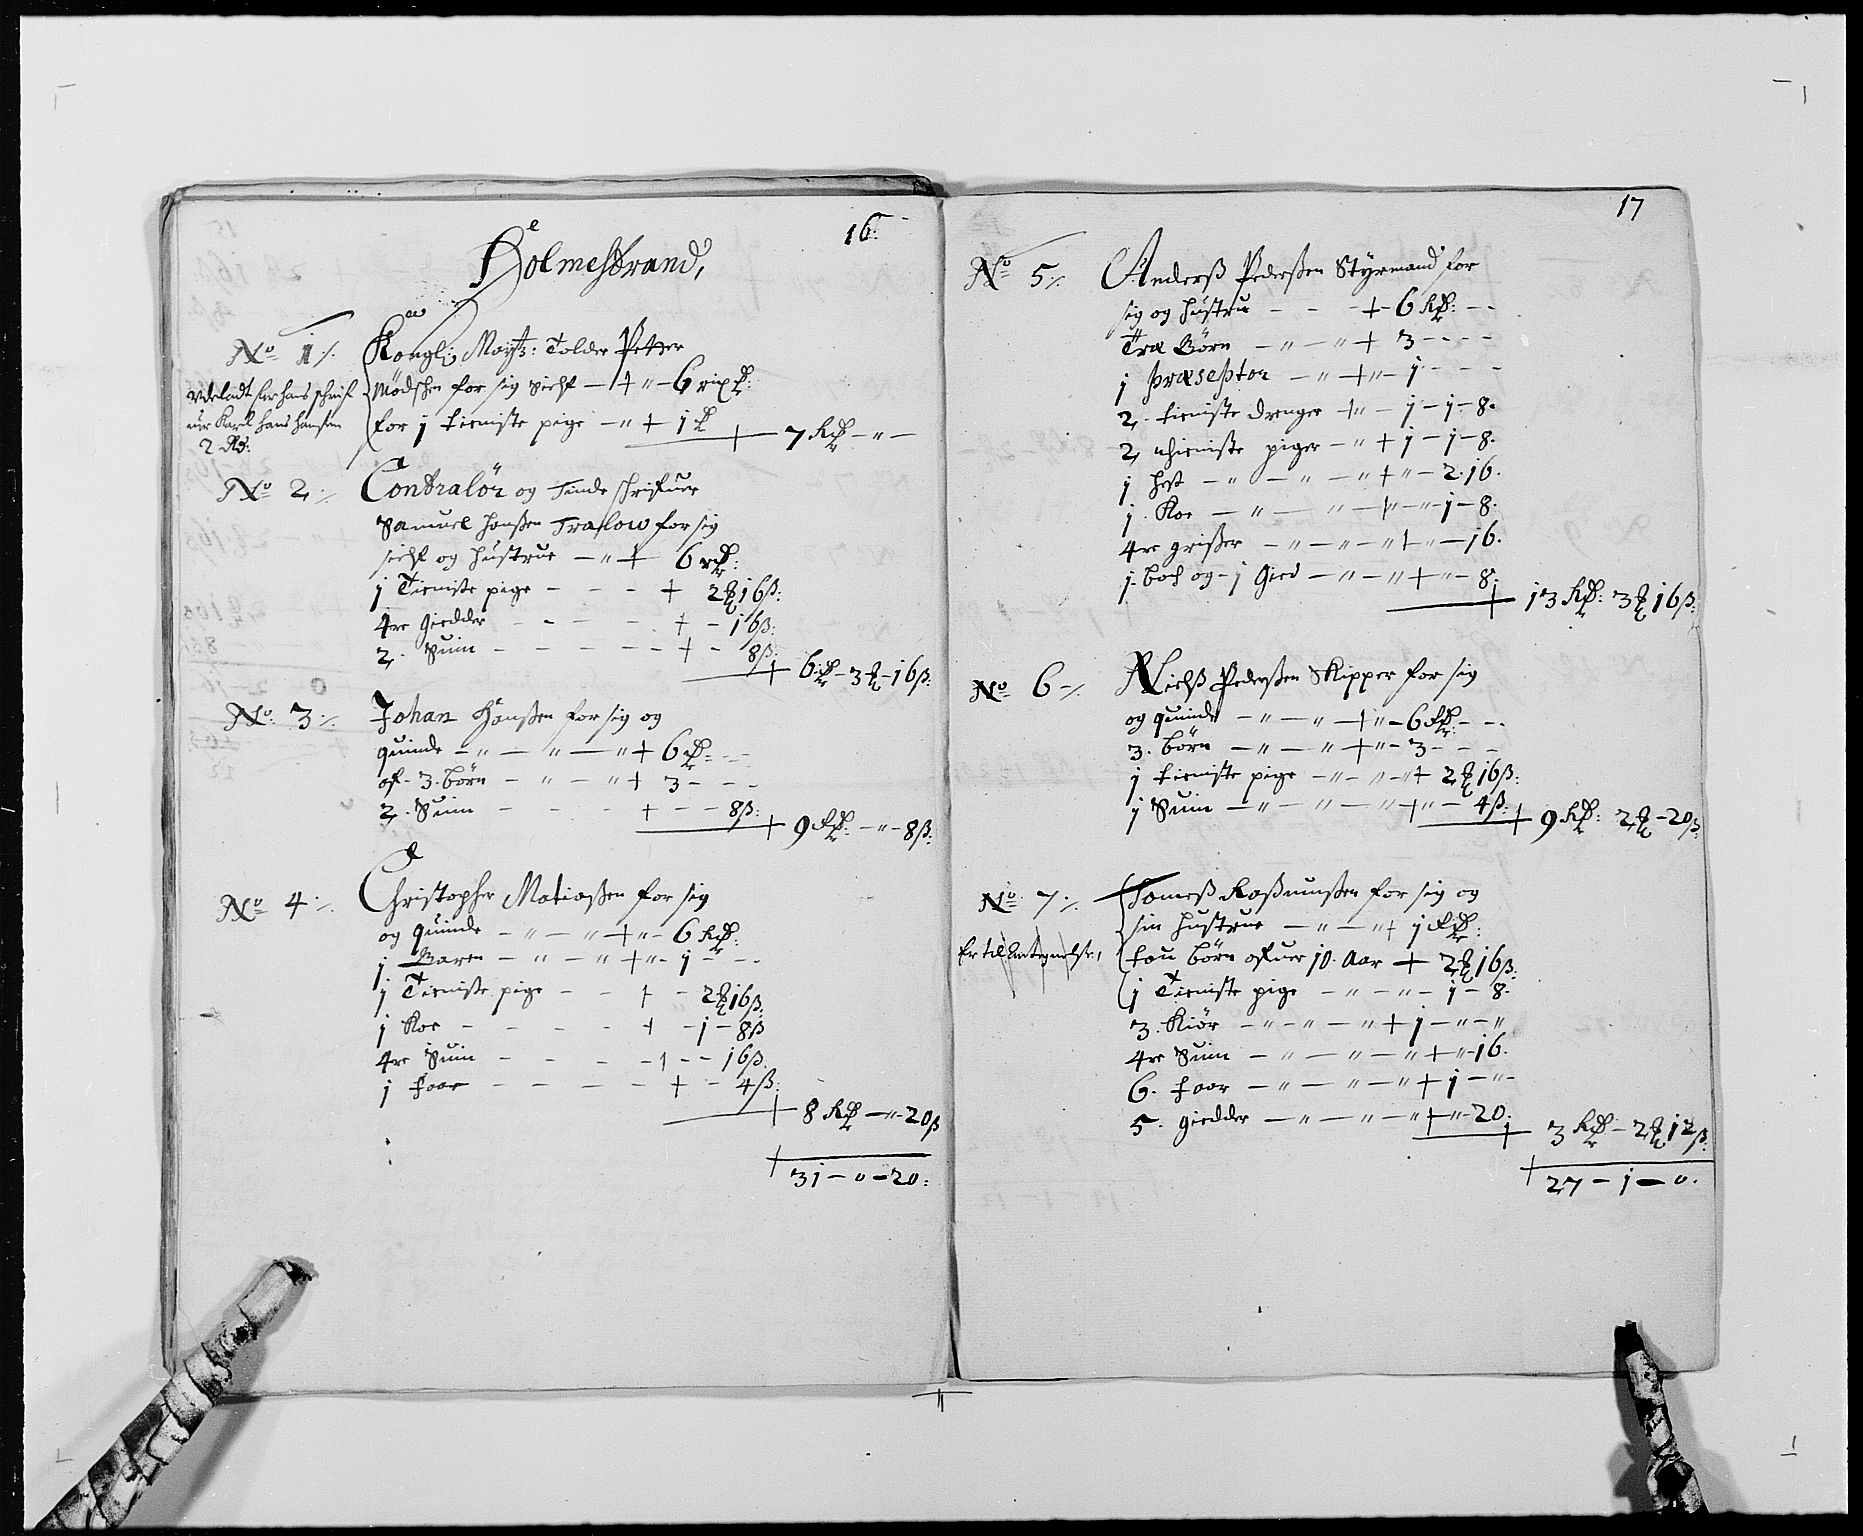 16.
Holmestrand,
No 1 ⁒ Kongl: Mayts: Tolder Petter
Mødschen for sig sielf — + „ — 6 rixd:
for 1 tieniste pige — „ + 1 d
+ 7 Rd — „ —
Vdeladt for hans schrif
uer Karel hans hansen
2 Rd:
No 2 ⁒ Contralör og Tinde schrifuer
Samuel Hanßen Tralow for sig
sielf og hustrue — „ + 6 rd:
1 Tieniste pige - - - + 2 ₰ 16 ß:
4re giedder - - - - + - 16 ß:
2. Suin - - - - - + - 8 ß:
+ 6 rd - 3 ₰ - 16 ß:
No 3 ⁒ Johan Hanßen for sig og
quinde — „ — „ — „ + 6 rd: - -
of 3. børn - „ - „ + 3 - - -
2. Suin - - - + - - 8 ß:
+ 9 Rd: - „ - 8 ß:
No 4 ⁒ Christopher Matiaßen for sig
og quinde - „ - „ - + „ - 6 Rd:
1 Baren - „ - „ + „ - 1 - - -
1 Tieniste pige - - + - 2 ₰ 16 ß:
1 Koe - - - - + - 1 - 8 ß
4re Suin - - - - + - - 16 ß.
1 faar - - - - + - 4 ß:
+ 8 Rd — „ - 20 ß
+ 31 - 0 - 20:
17
No 5 ⁒ Anderß Pederßen Styrmand for
sig og hustru - - + 6 Rd: - -
Tre Børn - „ - „ + 3 - - - -
1 præseptor - „ + „ - 1 - - -
2. tieniste drenger + „ - 1 - 1 - 8.
2 thieniste piger - „ + 1 - 1 - 8.
1 hest - „ - „ - „ + „ - 2. 16.
1. Koe - „ - „ - + „ - 1 - 8.
4re grißer - „ - „ - „ + „ - 16.
1. bock og - 1 Gied - „ - „ + „ - 8.
+ 13 Rd: 3 ₰ 16 ß:
No 6 ⁒ Nielß Pederßen Skipper for sig
og quinde - „ - „ - + „ - 6 Rd: - -
3. børn - „ - „ + „ - 3 - - -
1 tieniste pige - „ - „ - + 2 ₰ 16 ß:
1 Suin - „ - „ - „ + „ - 4 ß:
+ 9 Rd: 2 ₰ - 20 ß:
No 7 ⁒ Tomeß Raßmußen for sig og
sin hustrue - „ - „ + 1 Rd:
Er til Antegnelße,
tou børn ofuer 10. Aar + 2 ₰ 16 ß:
1 Tieniste pige - „ - „ - 1 - 8.
3. Kiör - „ - „ - „ + 1 - „ - „
4re Suin - „ - „ - „ + „ 16.
6. faar - „ - „ - „ + 1 - „ -
5. giedder - „ - „ - „ + „ - 20.
+ 3 Rd - 2 ₰ 12 ß:
+ 27 - 1 - 0.